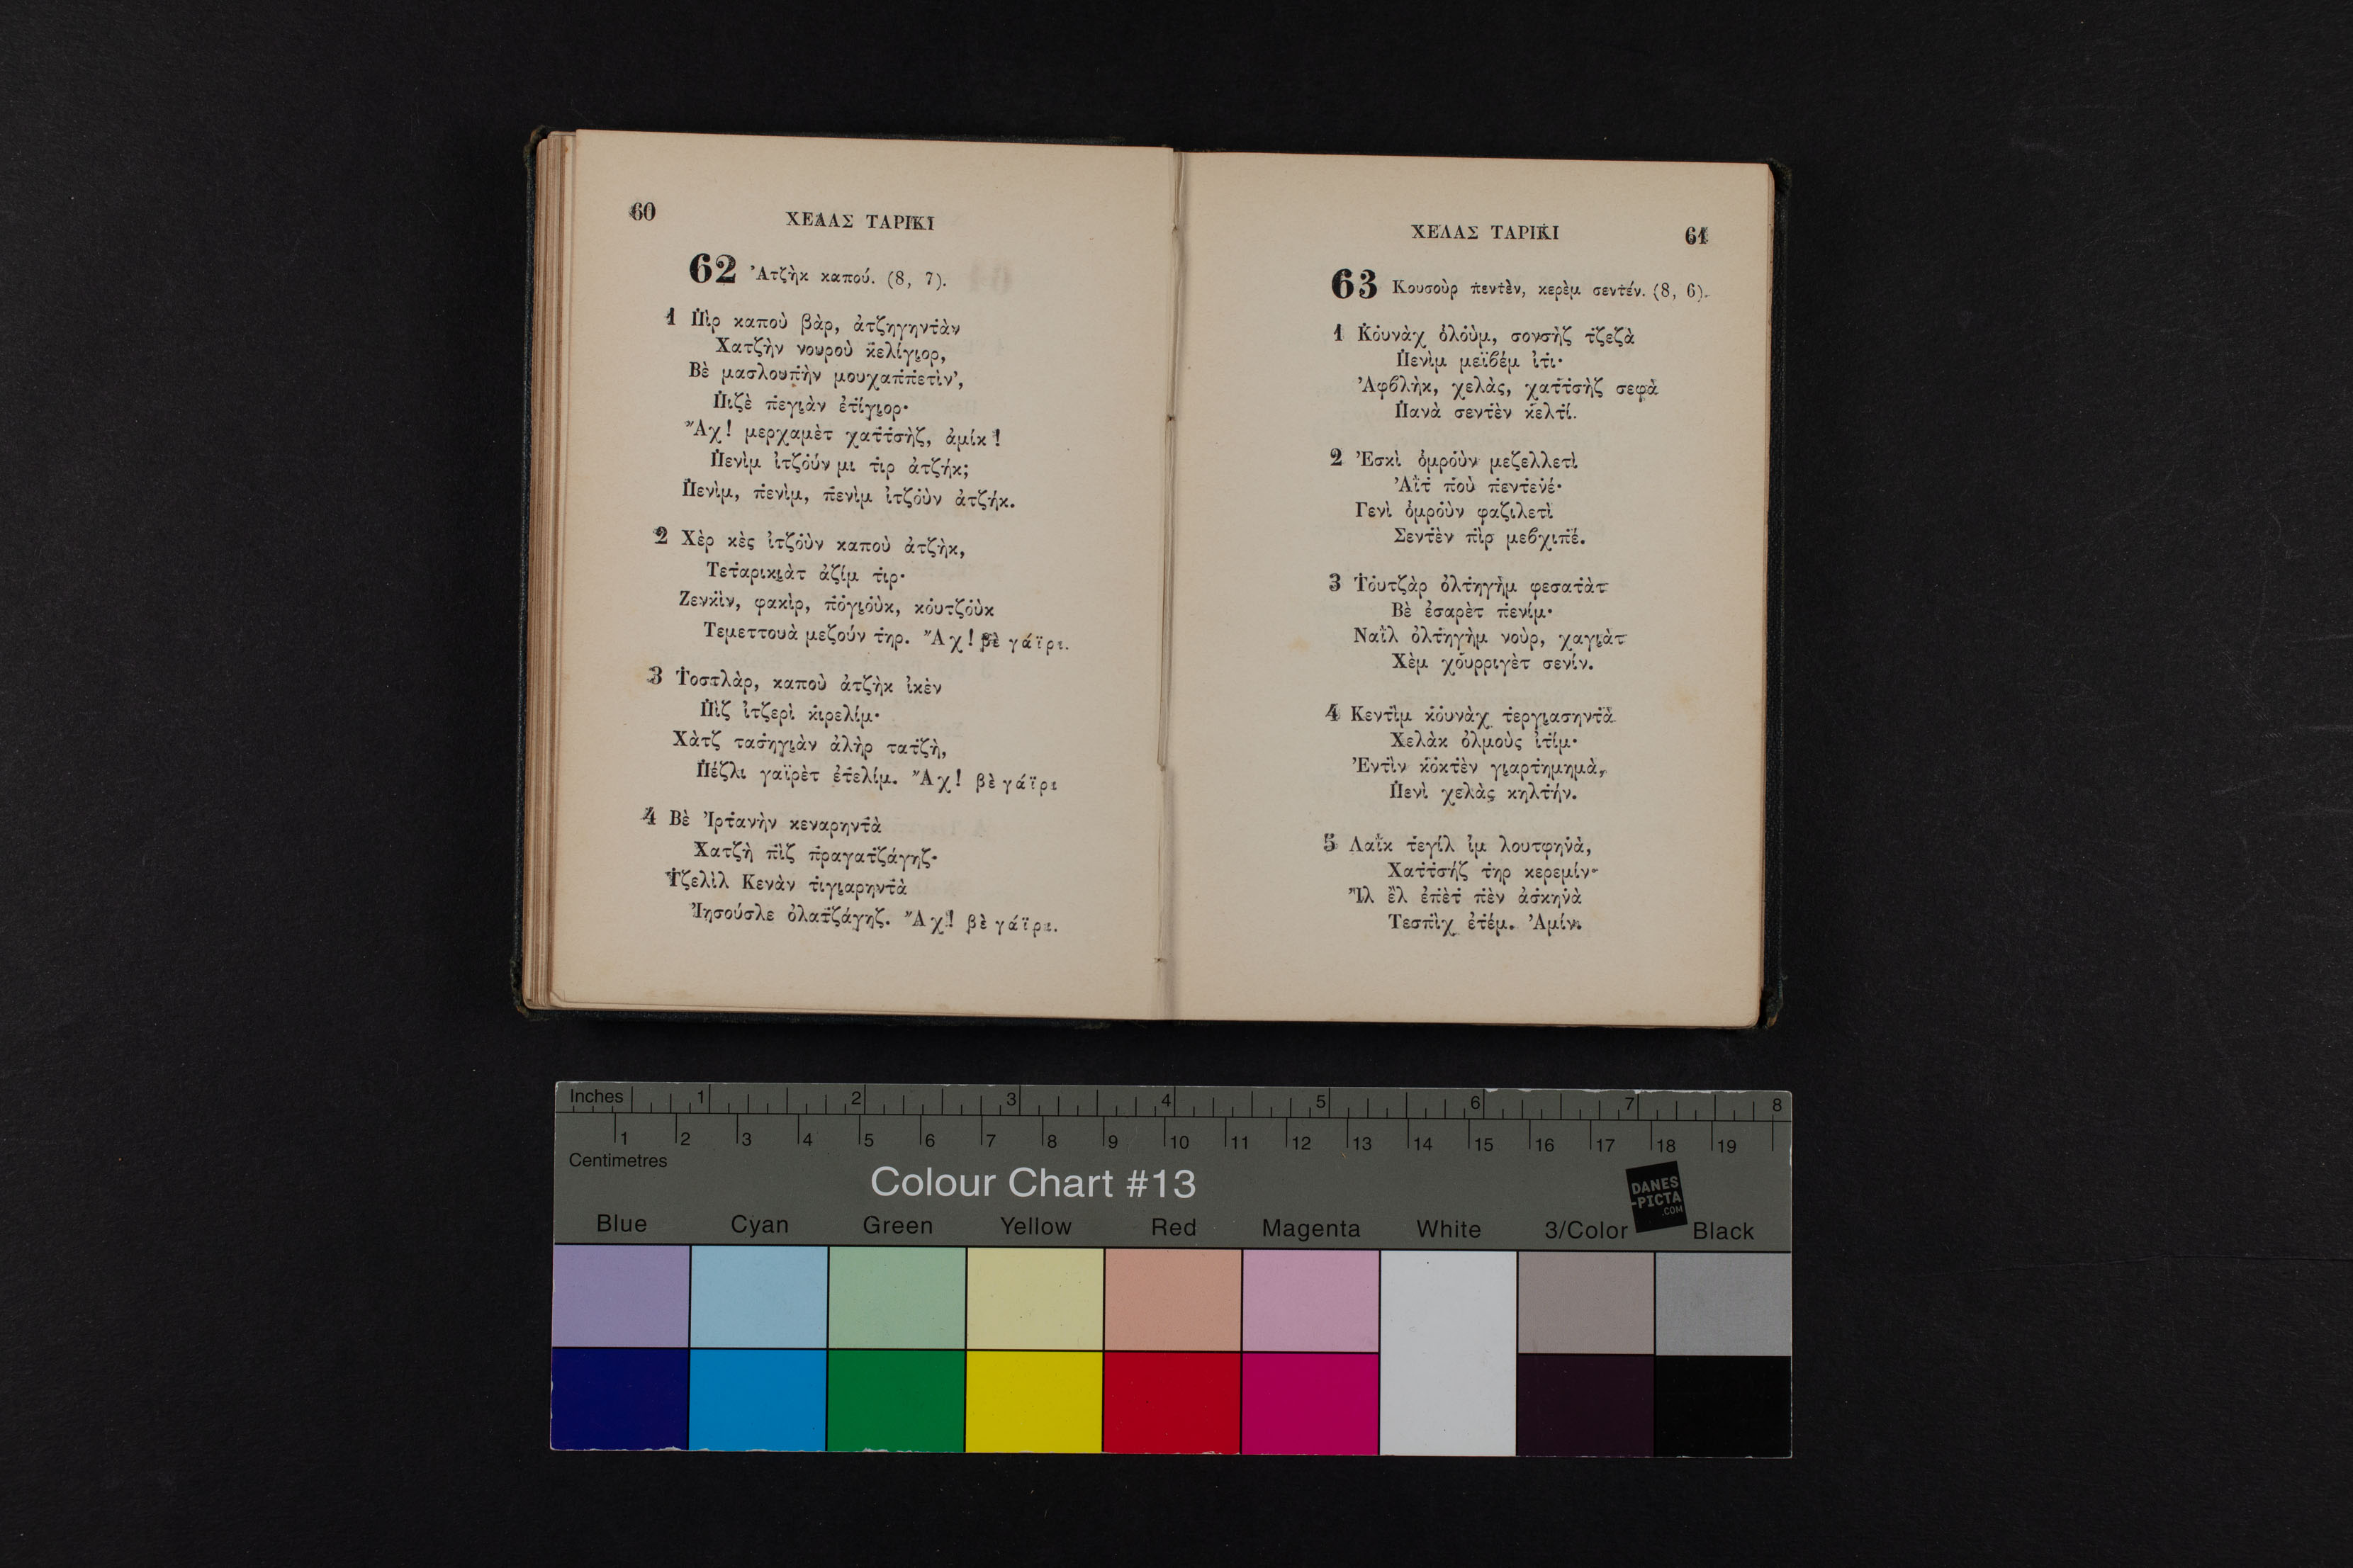 60
ΧΕΛΑΣ ΤΑΡΙΚΙ
62 Ἀτζὴκ καπού. (8, 7).
1 Π̇ὶρ καποὺ βὰρ, ἀτζηγηντ̇ὰν
Χατζὴν νουροὺ κ̇ελίγιορ,
Βὲ μασλουπ̇ὴν μουχαπ̇π̇ετὶν',
Π̇ιζὲ π̇εγιὰν ἐτ̇ίγιορ·
Ἂχ! μερχαμὲτ χατ̇τ̇σὴζ, ἀμίκ!
Π̇ενὶμ ἰτζοὺν μι τ̇ιρ ἀτζήκ;
Π̇ενὶμ, π̇ενὶμ, π̇ενὶμ ἰτζοὺν ἀτζήκ.
2 Χὲρ κὲς ἰτζοὺν καποὺ ἀτζὴκ,
Τετ̇αρικιὰτ ἀζίμ τ̇ιρ·
Ζενκ̇ὶν, φακὶρ, π̇ογιοὺκ, κουτζοὺκ
Τεμεττουὰ μεζούν τ̇ηρ. Ἂχ! βὲ γάϊρι.
3 Τ̇οστλὰρ, καποὺ ἀτζὴκ ἰκὲν
Π̇ὶζ ἰτζερὶ κ̇ιρελίμ·
Χὰτζ τασ̇ηγιὰν ἀλὴρ τατζὴ,
Π̇έζλι γαϊρὲτ ἐτ̇ελίμ. Ἂχ! βὲ γάϊρι
4 Βὲ Ἰρτ̇ανὴν κεναρηντ̇ὰ
Χατζὴ π̇ὶζ π̇ραγατζάγηζ·
Τ̇ζελὶλ Κενὰν τ̇ιγιαρηντ̇ὰ
Ἰησούσλε ὀλατζάγηζ. Ἂχ! βὲ γάϊρι.
ΧΕΛΑΣ ΤΑΡΙΚΙ
61
63 Κουσοὺρ π̇εντ̇ὲν, κερὲμ σεντ̇έν. (8, 6).
1 Κ̇ουνὰχ ὀλοὺμ, σονσὴζ τ̇ζεζὰ
Π̇ενὶμ μεϊβέμ ἰτ̇ι·
Ἀφβλὴκ, χελὰς, χατ̇τ̇σὴζ σεφὰ
Π̇ανὰ σεντ̇ὲν κ̇ελτ̇ί.
2 Ἐσκὶ ὀμροὺν μεζελλετὶ
Ἀῒτ̇ π̇οὺ π̇εντ̇ενέ·
Γενὶ ὀμροὺν φαζιλετὶ
Σεντ̇ὲν π̇ὶρ μεβχιπ̇έ.
3 Τ̇ουτζὰρ ὀλτ̇ηγὴμ φεσατ̇ὰτ
Βὲ ἐσαρὲτ π̇ενίμ·
Ναῒλ ὀλτ̇ηγὴμ νοὺρ, χαγιὰτ
Χὲμ χουρριγὲτ σενίν.
4 Κεντ̇ὶμ κ̇ουνὰχ τ̇εργιασηντ̇ὰ
Χελὰκ ὀλμοὺς ἰτ̇ίμ·
Ἐντ̇ὶν κ̇οκτ̇ὲν γιαρτ̇ημημὰ,
Π̇ενὶ χελὰς κηλτ̇ήν.
5 Λαῒκ τ̇εγίλ ἰμ λουτφηνὰ,
Χατ̇τ̇σήζ τ̇ηρ κερεμίν·
Ἲλ ἒλ ἐπ̇ὲτ̇ π̇ὲν ἀσ̇κηνὰ
Τεσπ̇ὶχ ἐτ̇έμ. Ἀμίν.
Inches 1 2 3 4 5 6 7 8
1 2 3 4 5 6 7 8 9 10 11 12 13 14 15 16 17 18 19
Centimetres
Colour Chart #13
DANES
-PICTA
.COM
Blue Cyan Green Yellow Red Magenta White 3/Color Black